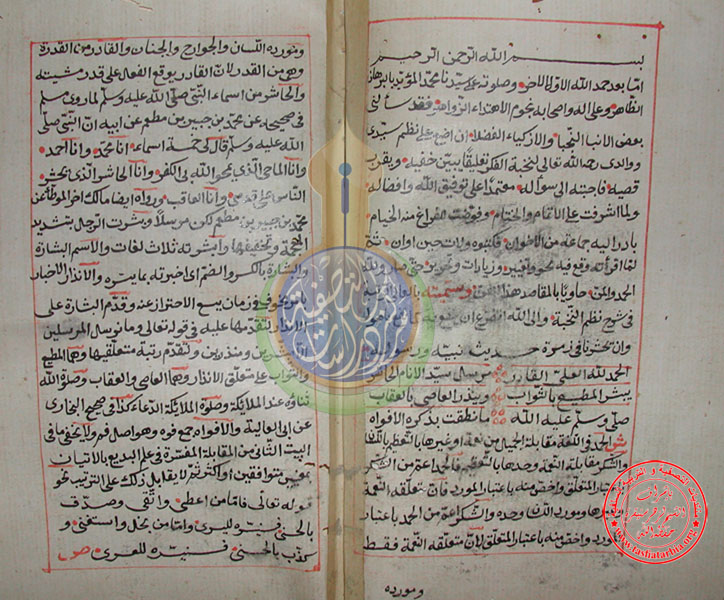 بسم الله الرحمن الرحيم
اما بعد حمد الله الاول الاخر وصلوته على سيدنا محمد المؤيد
الظاهر وعلى اله واصحابه نجوم الاهتداء الزواهر فقد سألني
بعض الانبا النجبا والازكياء الفضلا ان اضع على نظم سيدي
ووالدي رحمه الله تعالى لنخبة الفكر تعليقا يبين خفيه ويقرب
قصيه فاجبته الى سؤاله معتمدا على توفيق الله وافضاله
ولما اشرفت على الاتمام والختام وقوضت الفراغ منه الخيام
بادر اليه جماعة من الاخوان فكتبوه ولات حين اوان ثم
لما اقرأته وقع فيه نحو وتغيير وزيارات وتحرير حتى صار ولله
الحمد والمن حاويا بالمقاصد هذا الفن وسميته بالعالي الرتبة
في شرح نظم النخبة والى الله اتضرع ان ينفع به
وان يحشرنا في زمرة حديث نبيه ورسوله
الحمد لله العلي القادر مرسل سيد الانام الحاشر
يبشر المطيع بالثواب وينذر العاصي بالعقاب
صلى وسلم عليه الله ما نطقت بذكره الافواه
ش الحمد في اللغة مقابلة الجميل من نعمة او غيرها بالتعظيم باللسان
والشكر مقابلة النعمة وحدها بالتعظيم فالحمد اعم من الشكر
باعتبار المتعلق واخص منه باعتبار المورد فان متعلقه النعمة
وغيرها ومورده اللسان وحده والشكر اعم من الحمد باعتبار
المورد واخص منه باعتبار المتعلق لان متعلقه النعمة فقط
ومورده
ومورده اللسان والجوارح والجنان والقادر من القدرة
وهو من القدر لان القادر يوقع الفعل على قدر مشيته
والحاشر من اسماء النبي صلى الله عليه وسلم لما روى مسلم
في صحيحه عن محمد بن جبير بن مطعم عن ابيه ان النبي صلى
الله عليه وسلم قال لي خمسة اسماء انا محمد وانا احمد
وانا الماحي الذي يمحو الله بي الكفر وانا الحاشر الذي يحشر
الناس على قدمي وانا العاقب ورواه ايضا مالك اخر الموطأ عن
محمد بن جبير بن مطعم لكن مرسلا وبشرت الرجل بتشديد
المعجمة وتخفيفها وابشرته ثلاث لغات والاسم البشارة
والبشارة بالكسر والضم اى اخبرته بما يسره والانذار الاخبار
بامر مخوف في زمان يسع الاحتراز عنه وقدم البشارة على
الانذار لتقدمها عليه في قوله تعالى وما نرسل المرسلين
الا مبشرين ومنذرين ولتقدم رتبة متعلقيها وهما المطيع
والثواب على متعلق الانذار وهما العاصي والعقاب وصلوة الله
ثناؤه عند الملائكة وصلوة الملائكة الدعاء كذا في صحيح البخاري
عن ابي العالية والافواه جمع فوه وهو اصل فم ولا يخفى ما في
البيت الثاني من المقابلة المفسرة في علم البديع بالاتيان
بمعنيين متوافقين او اكثر ثم لا يقابل ذلك على الترتيب نحو
قوله تعالى فاما من اعطى واتقى وصدق
بالحسنى فسنيسره لليسرى واما من بخل واستغنى و
كذب بالحسنى فسنيسره للعسرى ص
www.tasfiatarbia.org